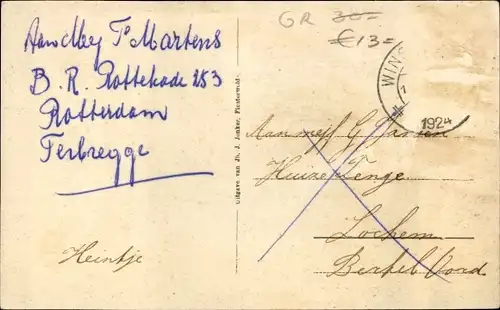 Aan Mej T Martens
B. R. Rottekade 253
Rotterdam
Terbregge
Heintje
Uitgave van Jh. J. Jonker, Finsterwold.
GR 30=
€13=
WINS
1924
Aan mej G Jansen
Huize Enge
Lochem
Berkel Oord